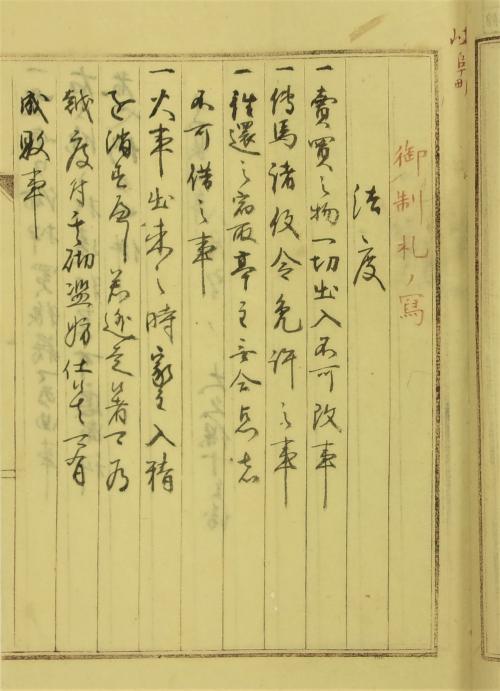 岐阜町
御制札ノ写
法度
一賣買之物一切出入不可改事
一傳馬諸役令免許之事
一往還之宿取亭主無合点者
不可借之事
一火事出来之時家主入精
可消若逃走者可為
越度付其砌濫妨仕者可有
成敗事